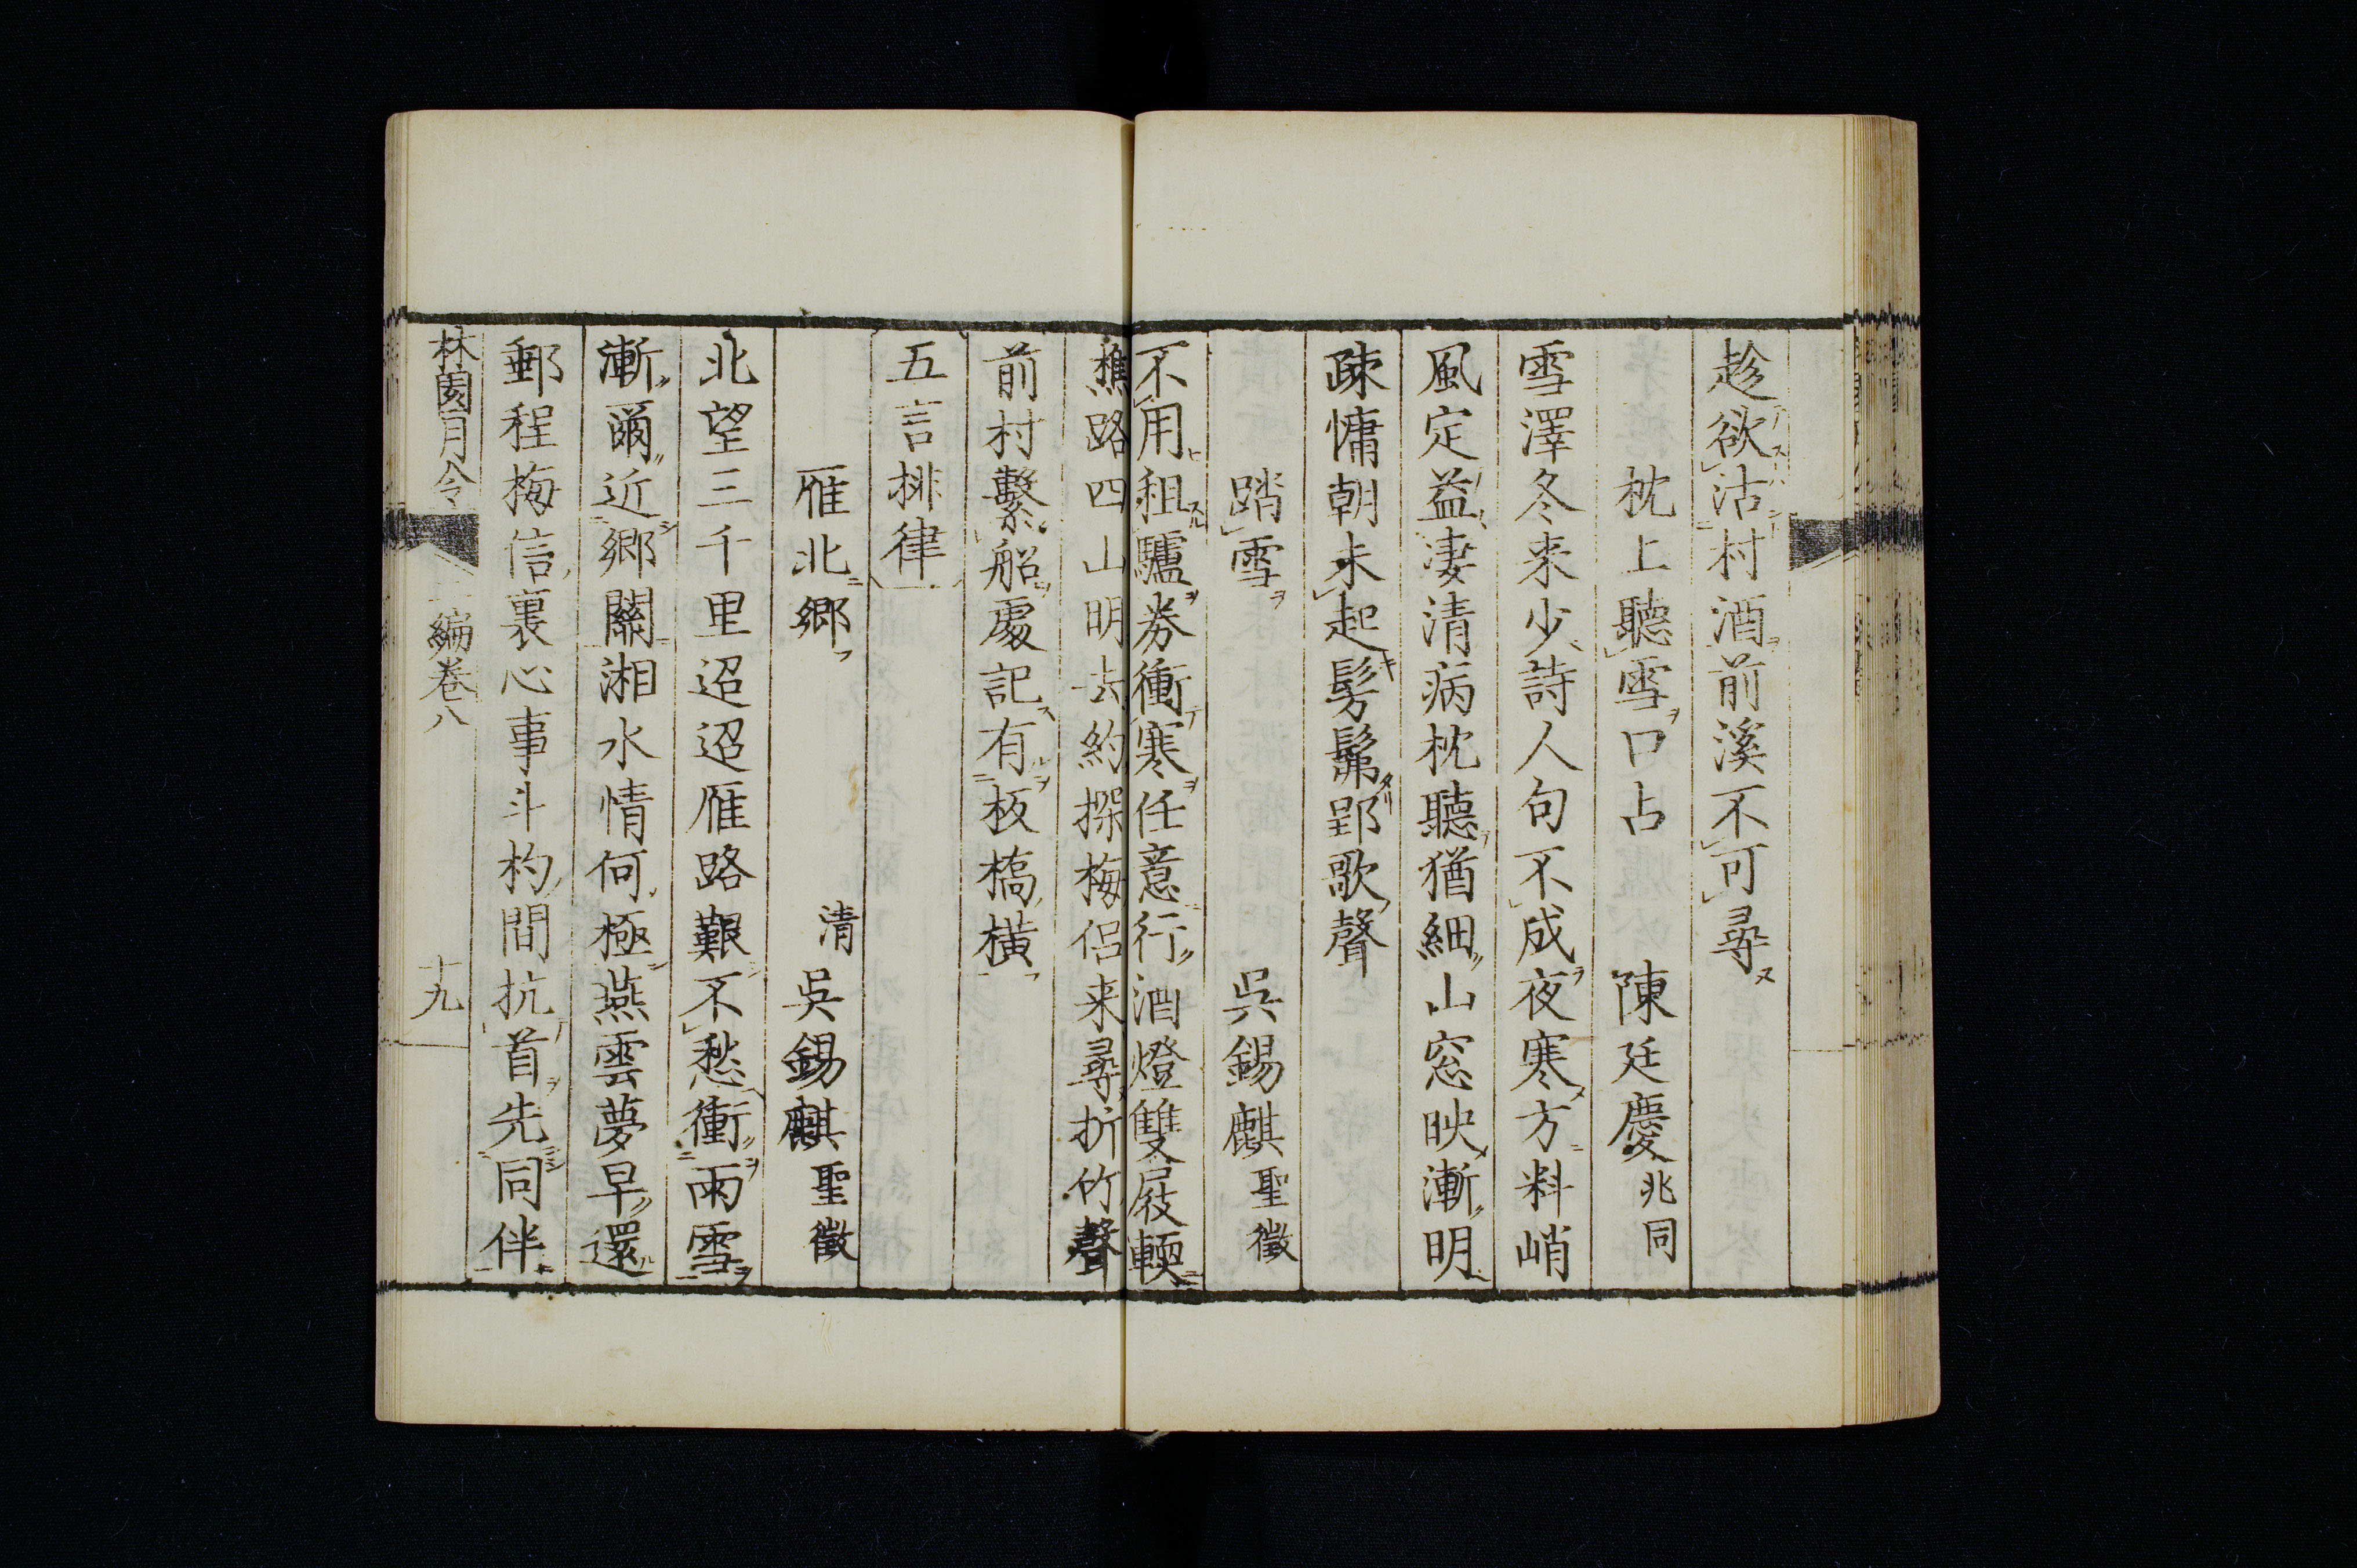 趁欲沽村酒前溪不可尋
枕上聽雪口占 陳廷慶兆同
雪澤冬来少詩人句不成夜寒方料峭
風定益凄清病枕聽猶細山窓映漸明
疎慵朝未起髣髴郢歌聲
踏雪 吳錫麒聖徵
不用租驢券衝寒任意行酒燈雙屐輭
樵路四山明去約探梅侣来尋折竹聲
前村繫船處記有板橋橫
五言排律
雁北郷 清 吳錫麒聖徵
北望三千里迢迢雁路艱不愁衝雨雪
漸爾近郷關湘水情何極燕雲夢早還
郵程梅信裏心事斗杓間抗首先同伴
林園月令 編卷八 十九